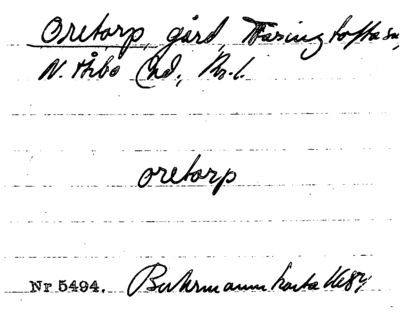 Oretorp, gård, Färingtofta sn,
N. Åsbo hd, Kr. l.
oretorp
Nr 5494. Buhrmann karta 1684